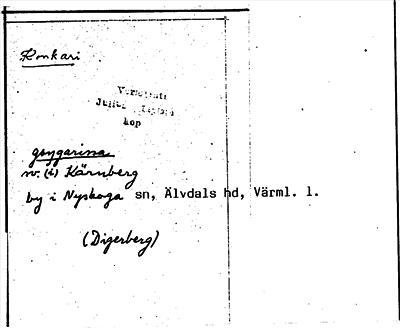 Ronkari
Värmland
Julius
kop
gråggarina
nv. (t) Kärnberg
by i Nyskoga sn, Älvdals hd, Värml. l.
(Digerberg)